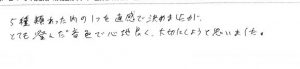 5種類あった内の1つを直感で決めましたが、
とても澄んだ音色で心地良く、大切にしようと思いました。